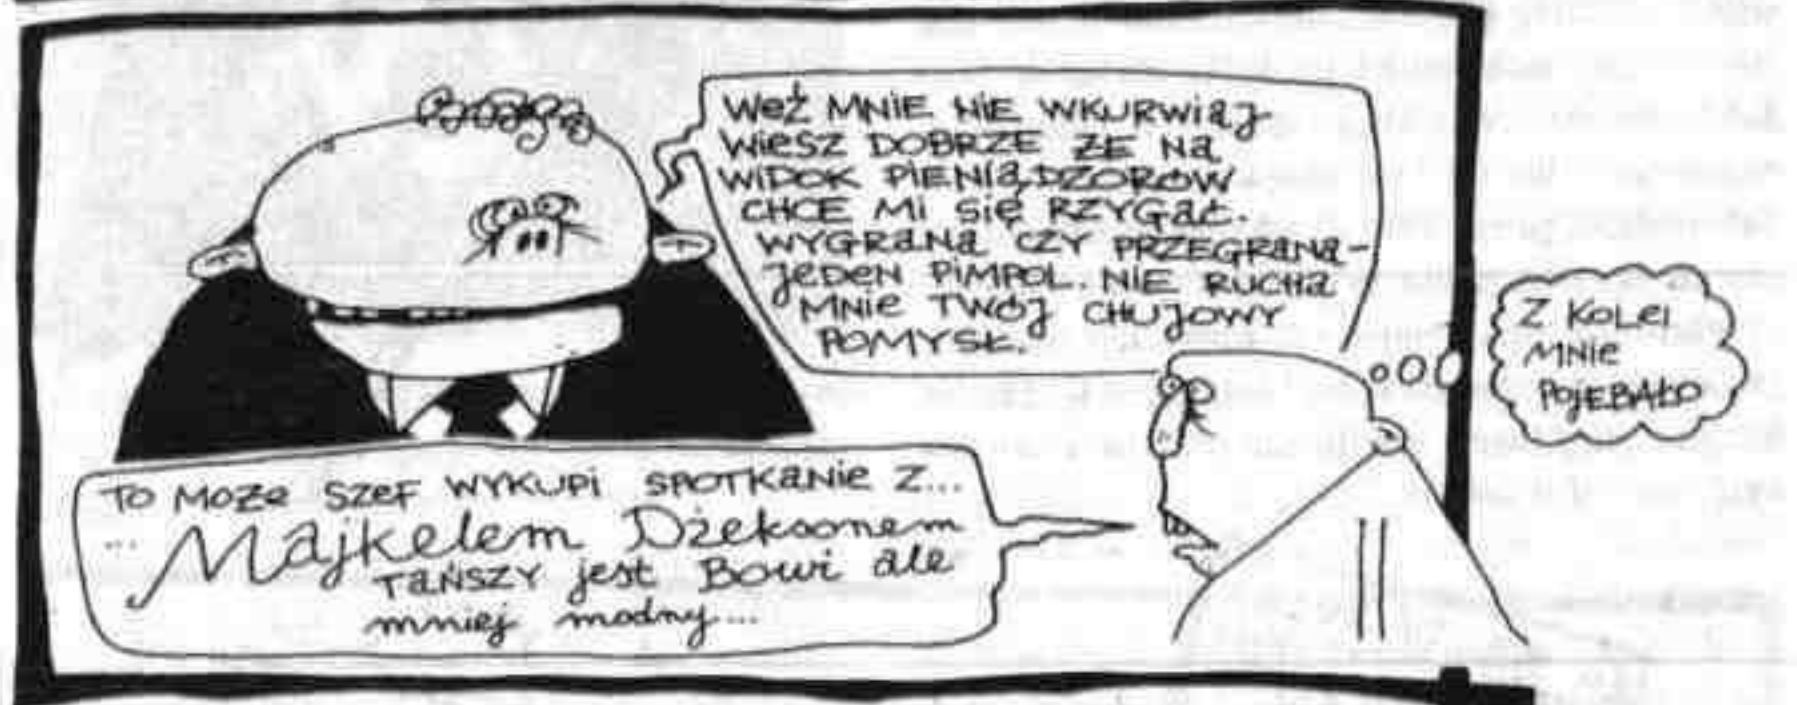 Weź MNIE NIE WKURWIAJ
WIESZ DOBRZE ŻE NA
WIDOK PIENIĄDZORÓW
CHCE MI SIĘ RZYGAĆ.
WYGRANA CZY PRZEGRANA-
JEDEN PIMPOL. NIE RUCHA
MNIE TWÓJ CHUJOWY
POMYSŁ.
Z KOLEI
MNIE
POJEBAŁO
TO MOŻE SZEF WYKUPI SPOTKANIE Z...
... Majkelem Dżeksonem
TAŃSZY jest Bowi ale
mniej modny...